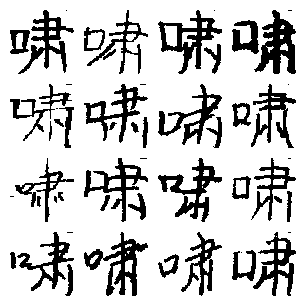 啸啸啸啸
啸啸啸啸
啸啸啸啸
啸啸啸啸